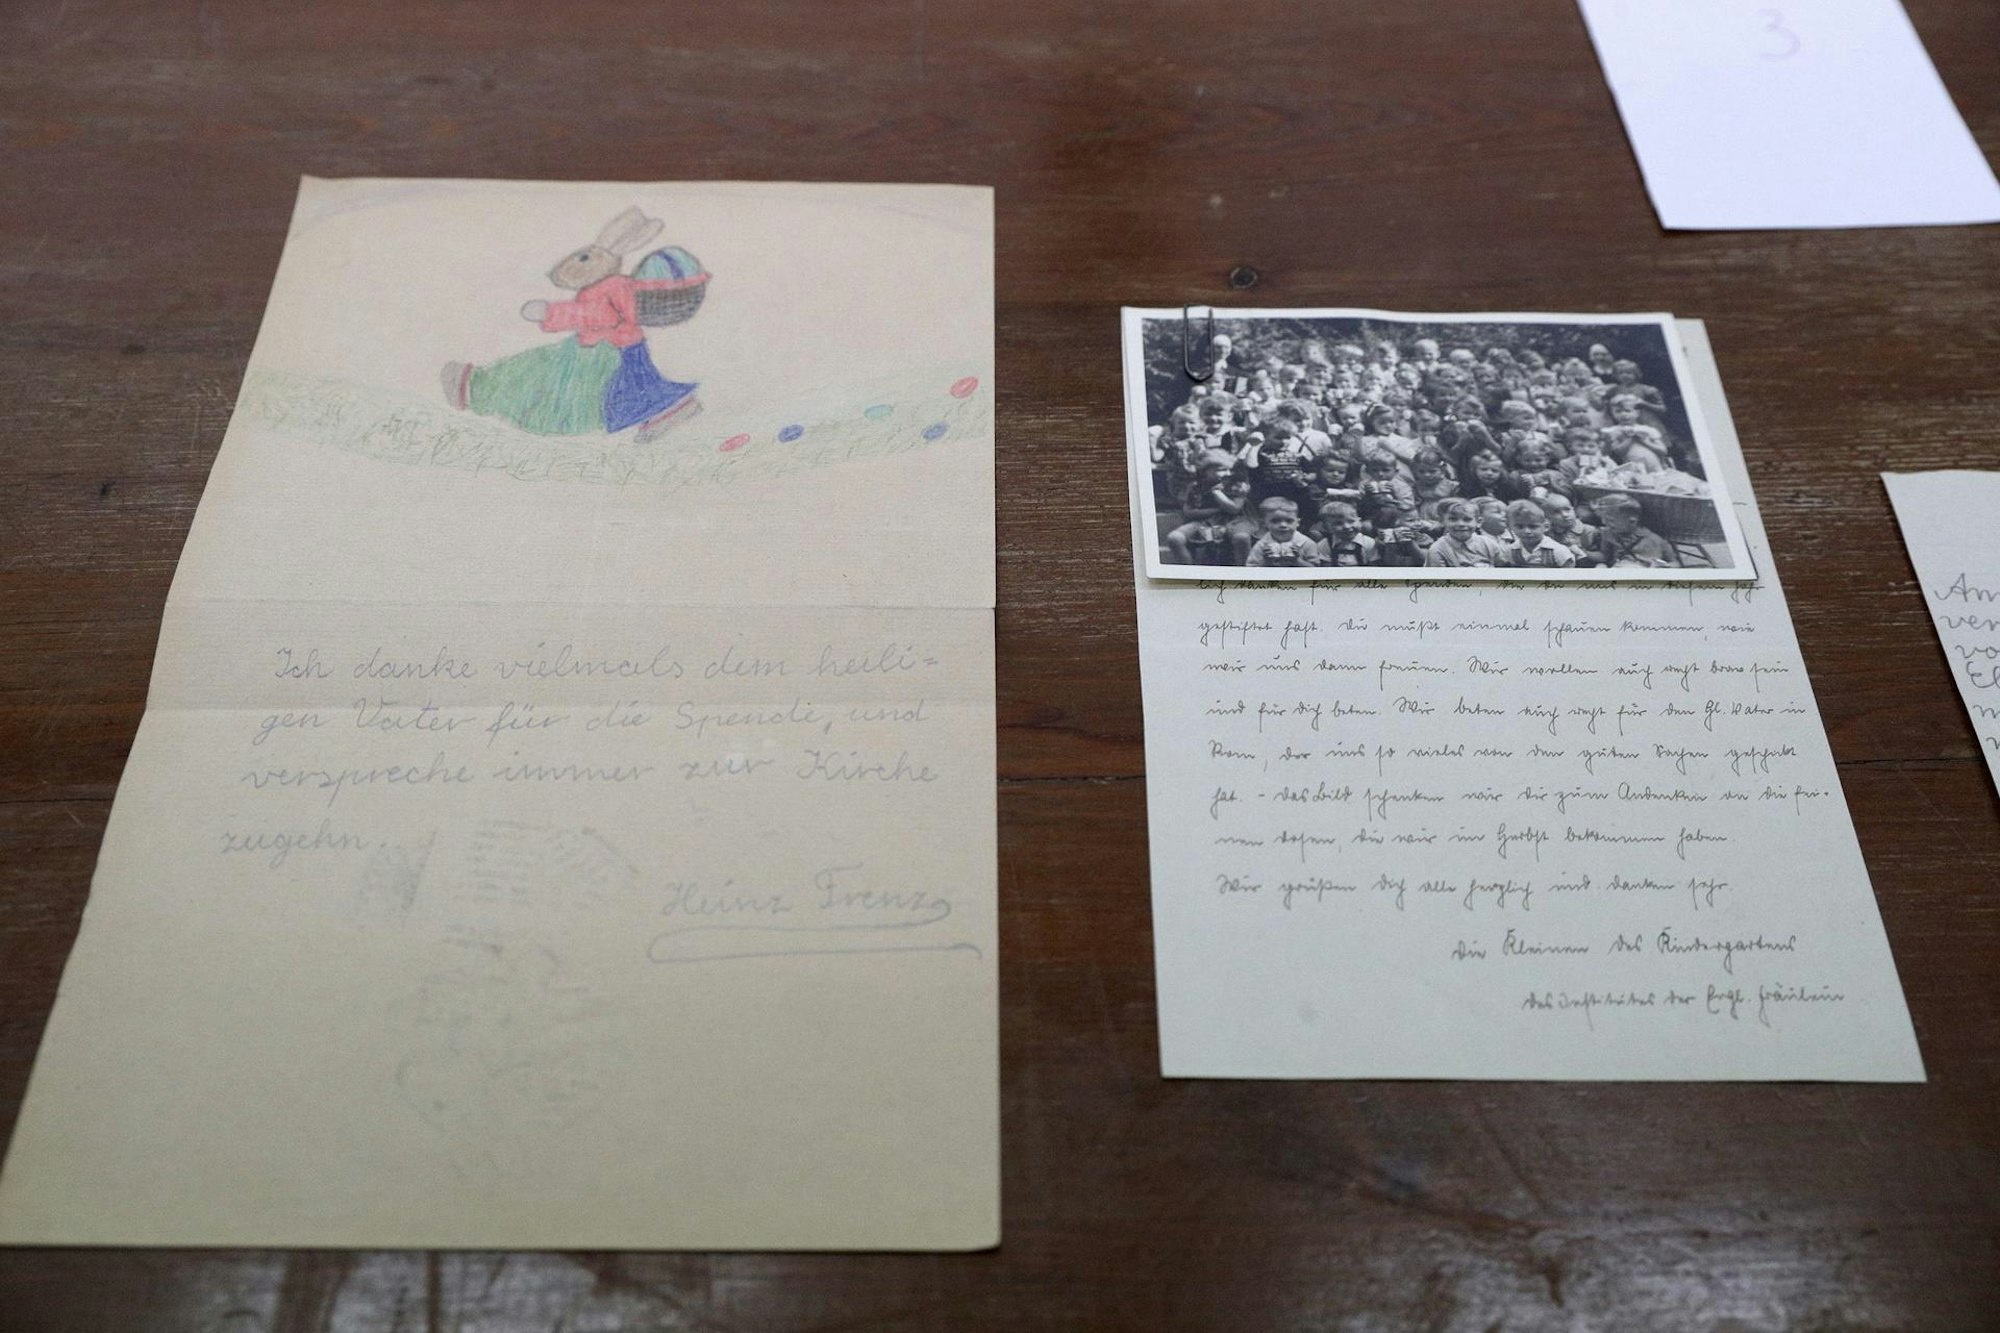 Ich danke vielmals dem heili=
gen Vater für die Spende, und
verspreche immer zur Kirche
zugehn.
Heinz Frenz
lich danken für alle Spenden, die du uns in diesem
gestiftet hast. Du mußt einmal schauen kommen, wie
wir uns dann freuen. Wir wollen auch recht brav sein
und für dich beten. Wir beten auch recht für den Hl. Vater in
Rom, der uns so vieles von den guten Sachen geschickt
hat. - Das Bild schenken wir dir zum Andenken an die fei-
nen Dosen, die wir im Herbst bekommen haben.
Wir grüßen dich alle herzlich und danken sehr.
Die Kleinen des Kindergartens
des Institutes der Engl. Fräulein
3
An
ver